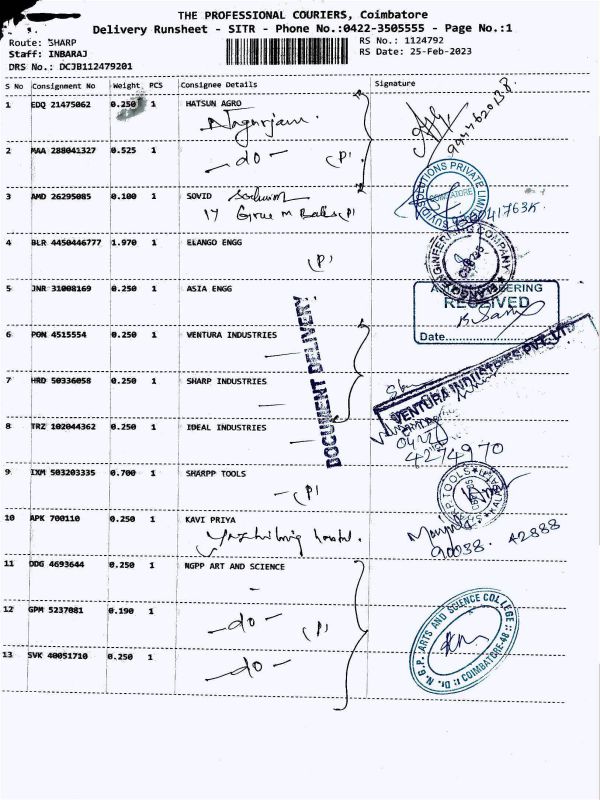 THE PROFESSIONAL COURIERS, Coimbatore
Delivery Runsheet - SITR - Phone No.:0422-3505555 - Page No.:1
Route: SHARP
RS No.: 1124792
Staff: INBARAJ
RS Date: 25-Feb-2023
DRS No.: DCJB112479201
S No Consignment No Weight PCS Consignee Details Signature
1 EDQ 21475062 0.250 1 HATSUN AGRO
2 MAA 288041327 0.525 1
-do- (P)
3 AMD 26295085 0.100 1 SOVID
17
4 BLR 4450446777 1.970 1 ELANGO ENGG
(P)
5 JNR 31008169 0.250 1 ASIA ENGG
RECEIVED
Date
6 PON 4515554 0.250 1 VENTURA INDUSTRIES
DOCUMENT DELIVERY
VENTURA INDUSTRIES PVT LTD
7 HRD 50336058 0.250 1 SHARP INDUSTRIES
8 TRZ 102044362 0.250 1 IDEAL INDUSTRIES
4274970
9 IXM 503203335 0.700 1 SHARPP TOOLS
(P)
10 APK 700110 0.250 1 KAVI PRIYA
90038. 42888
11 DDG 4693644 0.250 1 NGPP ART AND SCIENCE
12 GPM 5237081 0.190 1
-do- (P)
13 SVK 40051710 0.250 1
-do-
N.G.P. ARTS AND SCIENCE COLLEGE
COIMBATORE-48